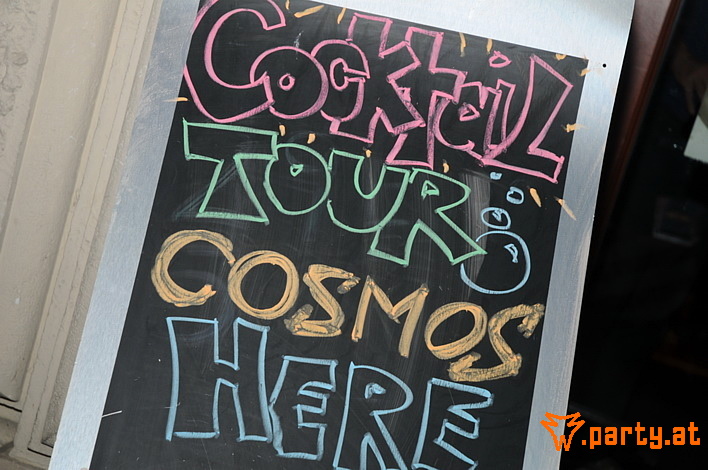 Cocktail
TOUR
COSMOS
HERE
.party.at